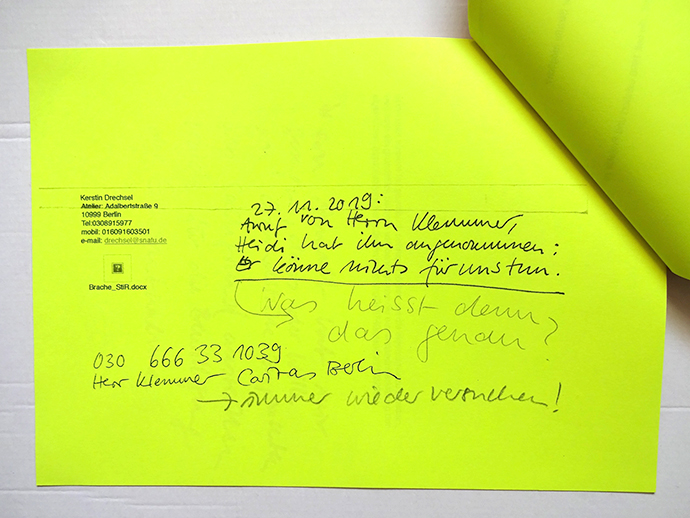 Kerstin Drechsel
Atelier: Adalbertstraße 9
10999 Berlin
Tel:0308915977
mobil: 016091603501
e-mail: drechsel@snafu.de
Brache_StiR.docx
27. 11. 2019:
Anruf von Herrn Klemmer,
Heidi hat ihn angenommen:
Er könne nichts für uns tun.
Was heisst denn
das genau?
030 666 33 1039
Herr Klemmer Caritas Berlin
→ immer wieder versuchen!